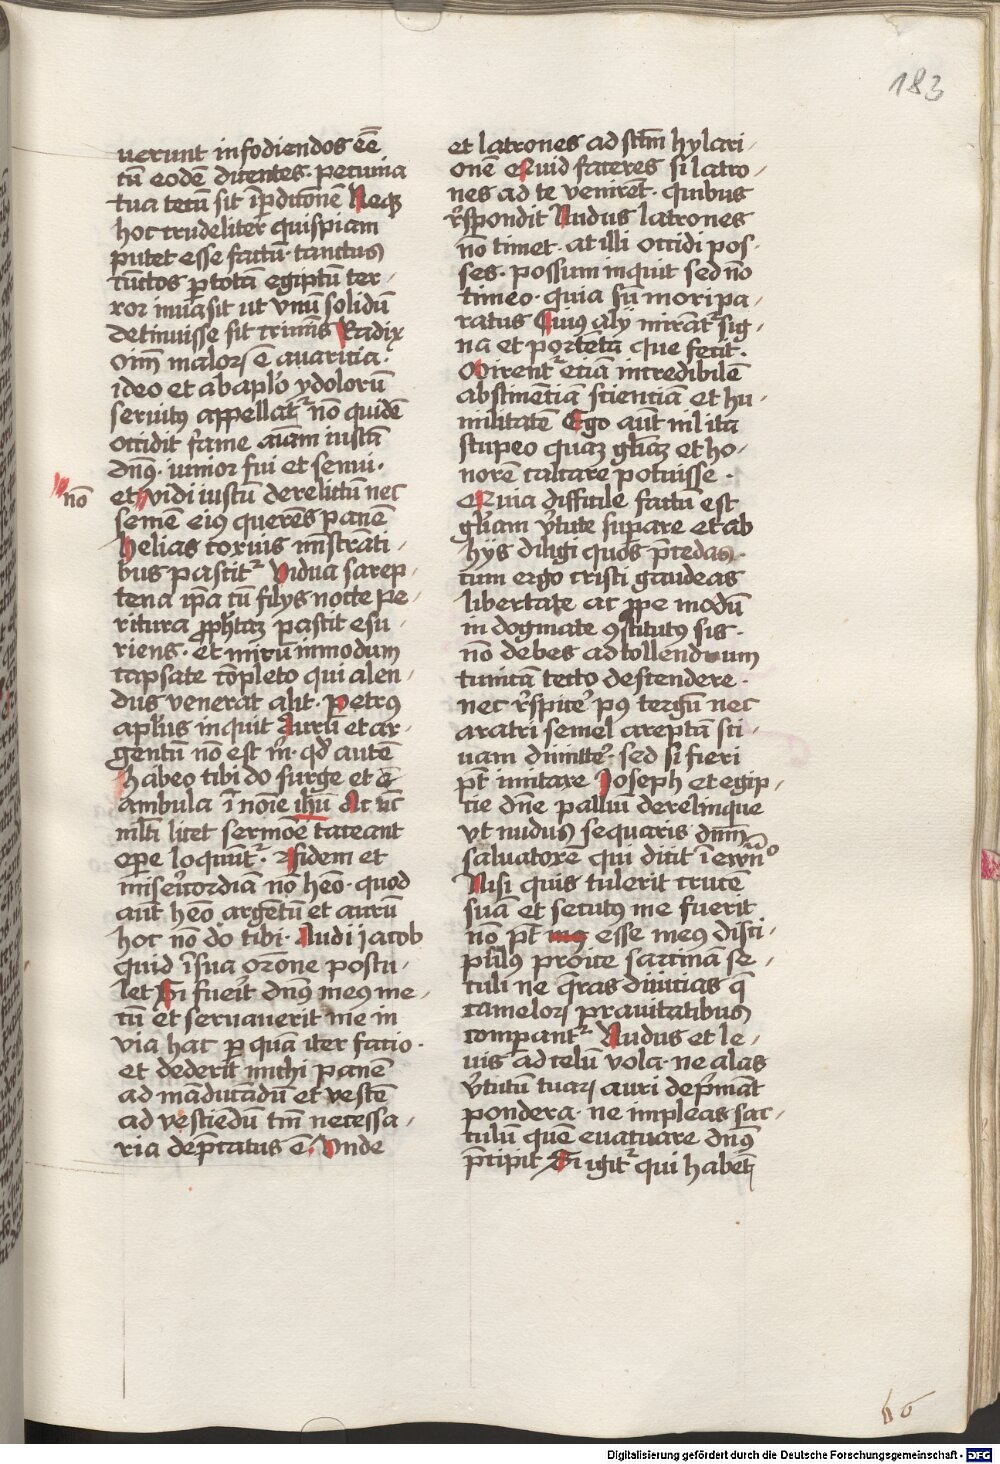 183
uerunt infodiendos eē
cū eodē dicentes· pecunia
tua tecū sit ī ꝑdic̄onē Neqꝫ
hoc crudeliter quispiam
putet esse factū· tanctus
cūctos ꝑ totā egiptū ter-
ror inuasit ut vnū solidū
detinuisse sit crimīs Radix
oīm maloꝝ ē auaricia·
ideo et ab apl̄o ydolorū
seruitus appellat̄ nō quidē
occidit fame aīam iustā
dn̄s· iunior fui et senui·
nō
et vidi iustū derelictū nec
semē eius querēs panē
helias coruis mīstrāti-
bus pascit̄ Vidua sarep-
tena ip̄a cū filys nocte pe-
ritura ꝓph̄taꝫ pascit esu-
riens· et mirū inmodum
capsace cōpleto qui alen-
dus venerat alit· petrus
apl̄us inquit Aurū et ar-
gentū nō est m̄· qd̄ autē
habeo tibi do surge et ā
ambula ī noīe ih̄u At nc̄
ml̄ti licet sermōe taceant
oꝑe loquūt̄· fidem et
miser̄icordiā nō hēo· quod
aut̄ hēo argētū et aurū
hoc nō do tibi· Audi jacob
quid ī sua or̄one postu-
let Si fuerit dn̄s meus me-
cū et seruauerit me in
via hac ꝑ quā iter facio·
et dederit michi panē
ad māducādū et vestē
ad vestiēdū tm̄ necessa-
ria dep̄catus ē· Vnde
et latrones ad sc̄m hylari-
onē Quid faceres si latro-
nes ad te venirēt· quibus
r̄spondit Nudus latrones
nō timet· at illi occidi pos-
ses· possum inquit sed nō
timeo· quia sū mori pa-
ratus Cuius aly mirāt̄ sig-
na et portēta que fecit·
Mirent̄ etiā incredibilē
abstinentiā scienciā et hu-
militatē Ego aut̄ nil ita
stupeo quaꝫ gl̄iaꝫ et ho-
norē calcare potuisse·
Quia difficile factū est
gl̄iam v̄tute suꝑare et ab
hys diligi quos p̄cedas·
cum ergo cristi gaudeas
libertate ac ꝓpe modū
in dogmate ꝯstitutus sis·
nō debes ad tollendum
tunicā tecto descendere·
nec r̄spicere pꝰ tergū nec
aratri semel areptā sti-
uam dimitte· sed si fieri
pt̄ imitare Joseph et egip-
cie dn̄e palliū derelinque
vt nudus sequaris dn̄m
saluatorē qui dicit ī ewn̄o
Nisi quis tulerit crucē
suā et secutus me fuerit
nō pt̄ esse meus disci-
pulus proice sarcinā se-
culi ne q̄ras diuicias q̄
cameloꝝ prauitatibus
comparant̄ Nudus et le-
uis ad celū vola· ne alas
v̄tutū tuaꝝ auri dep̄māt
pondera· ne impleas sac-
culū quē euacuare dn̄s
p̄cipit Si igit̄ qui habēt
Digitalisierung gefördert durch die Deutsche Forschungsgemeinschaft - DFG